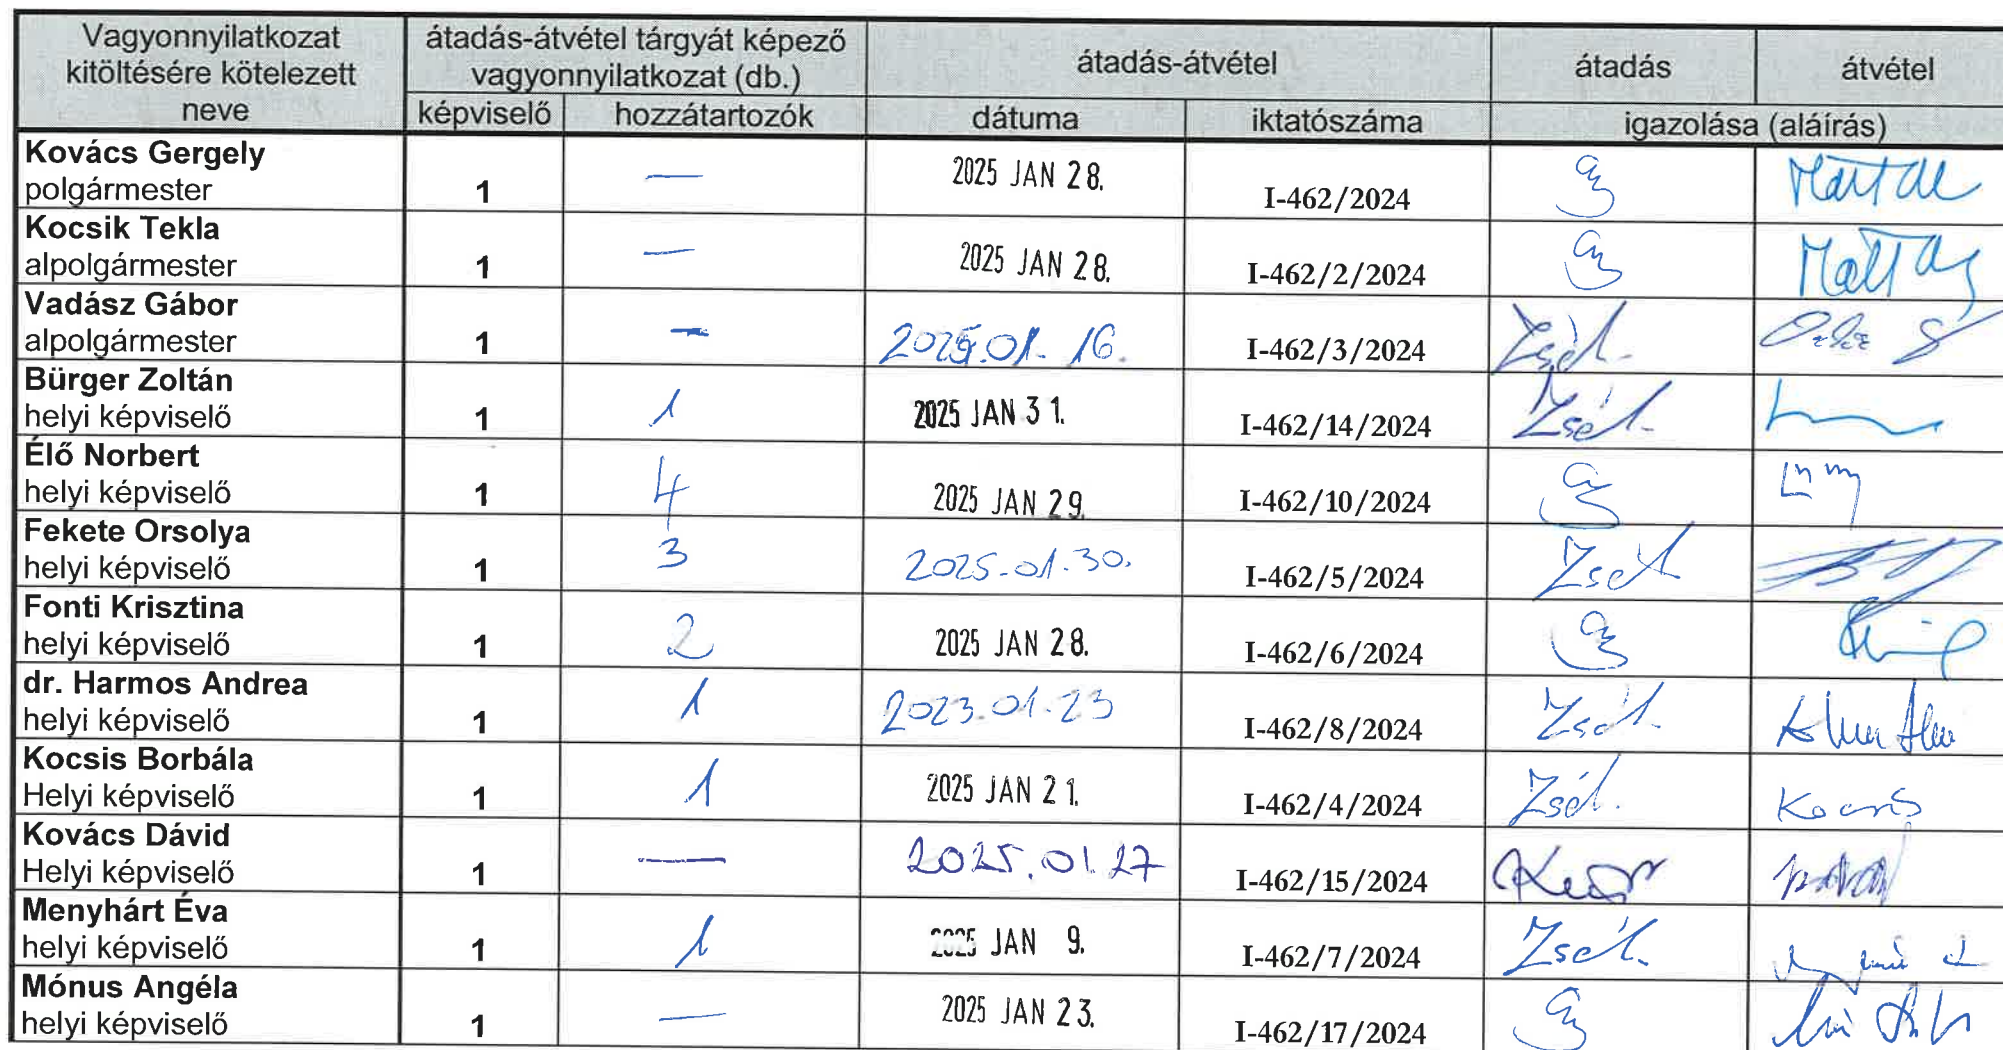 Vagyonnyilatkozat kitöltésére kötelezett neve
átadás-átvétel tárgyát képező vagyonnyilatkozat (db.)
átadás-átvétel
átadás
átvétel
képviselő hozzátartozók dátuma iktatószáma igazolása (aláírás)
Kovács Gergely
polgármester 1 — 2025 JAN 28. I-462/2024
Kocsik Tekla
alpolgármester 1 — 2025 JAN 28. I-462/2/2024
Vadász Gábor
alpolgármester 1 — 2025.01.16. I-462/3/2024
Bürger Zoltán
helyi képviselő 1 1 2025 JAN 31. I-462/14/2024
Élő Norbert
helyi képviselő 1 4 2025 JAN 29. I-462/10/2024
Fekete Orsolya
helyi képviselő 1 3 2025.01.30. I-462/5/2024
Fonti Krisztina
helyi képviselő 1 2 2025 JAN 28. I-462/6/2024
dr. Harmos Andrea
helyi képviselő 1 1 2023.01.23 I-462/8/2024
Kocsis Borbála
Helyi képviselő 1 1 2025 JAN 21. I-462/4/2024 Kocsis
Kovács Dávid
Helyi képviselő 1 — 2025.01.27 I-462/15/2024
Menyhárt Éva
helyi képviselő 1 1 2025 JAN 9. I-462/7/2024
Mónus Angéla
helyi képviselő 1 — 2025 JAN 23. I-462/17/2024